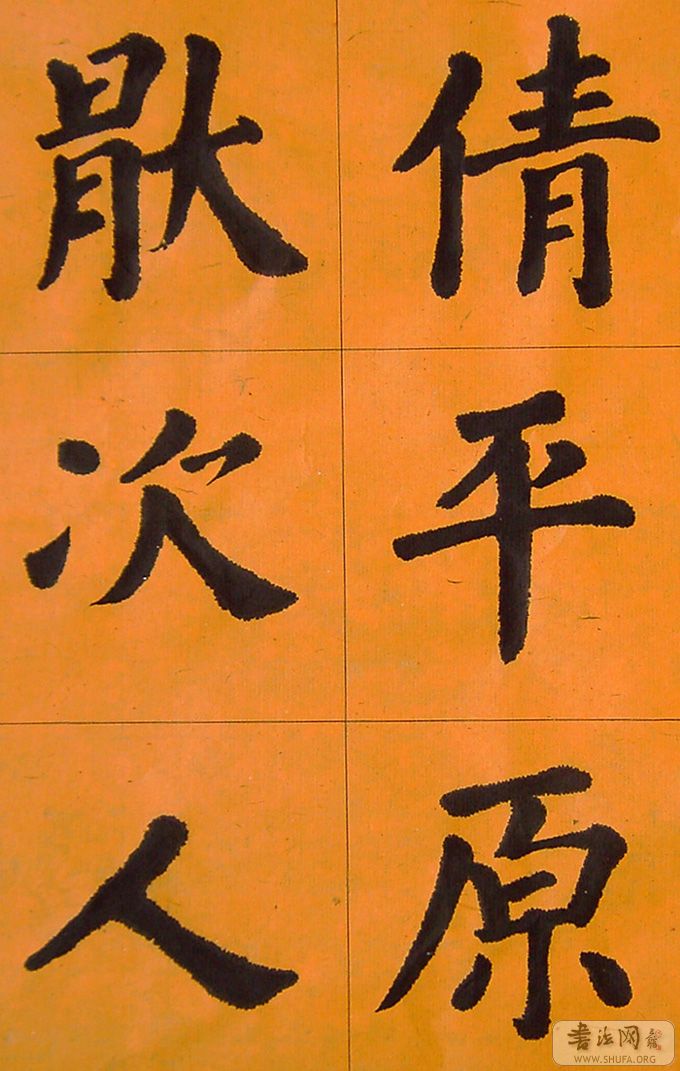 倩平原
猒次人
書法网
WWW.SHUFA.ORG